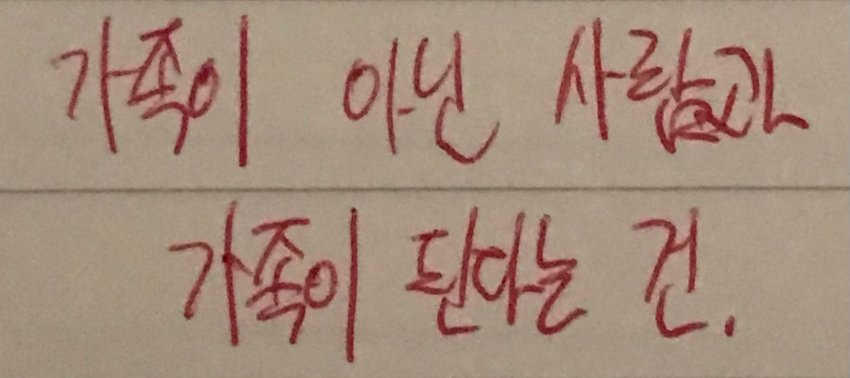 가족이 아닌 사람과
가족이 된다는 건.